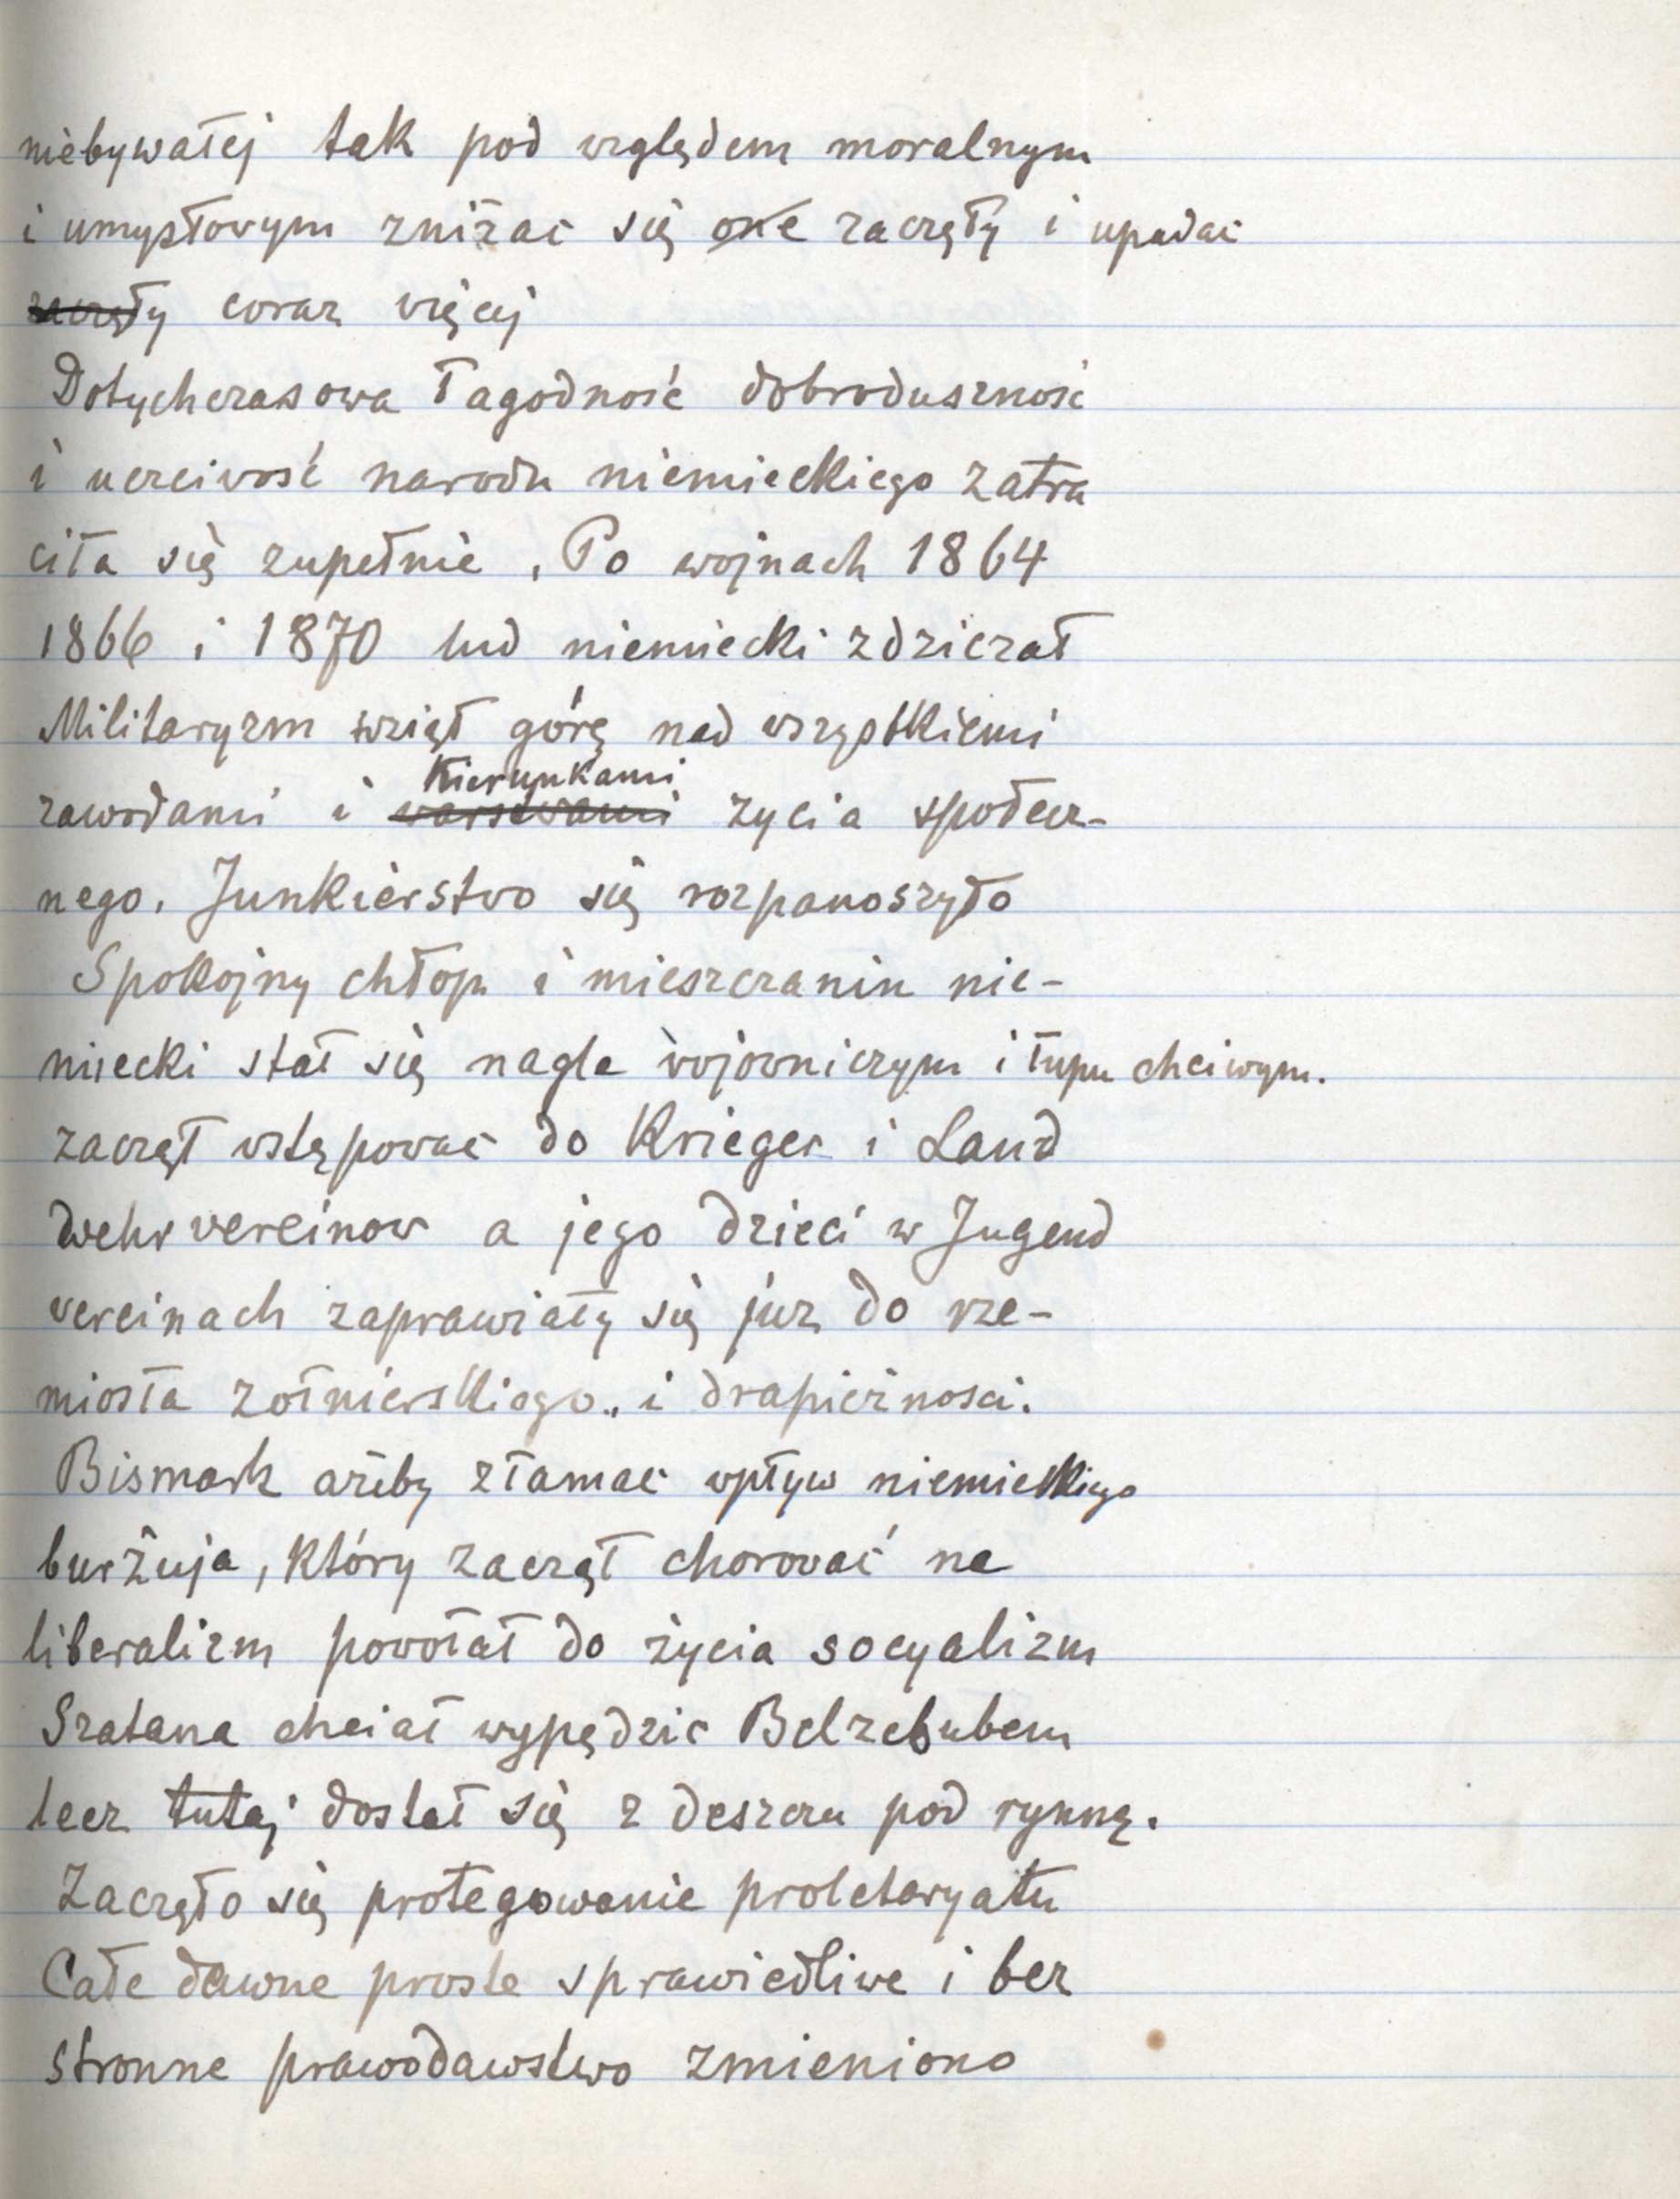 niebywałej tak pod względem moralnym
i umysłowym zniżac się one zaczęły i upadac
zaczęły coraz więcej
Dotychczasowa łagodność dobroduszność
i uczciwość narodu niemieckiego zatra
ciła się zupełnie. Po wojnach 1864
1866 i 1870 lud niemiecki zdziczał
Militaryzm wziął górę nad wszystkiemi
kierunkami
zawodami i warstwami życia społecz-
nego. Junkierstwo się rozpanoszyło
Spokojny chłop i mieszczanin nie-
miecki stał się nagle wojowniczym i łupu chciwym.
zaczął wstępowac do Krieger i Land
wehrvereinow a jego dzieci w Jugend
vereinach zaprawiały się juz do rze-
miosła zołnierskiego., i drapieżnosci.
Bismark ażeby złamac wpływ niemieckiego
burżuja, który zaczął chorować na
liberalizm powołał do życia socyalizm
Szatana chciał wypędzic Belzebubem
lecz tutaj dostał się z deszczu pod rynnę.
Zaczęło się protegowanie proletaryatu
Całe dawne proste sprawiedliwe i bez
stronne prawodawstwo zmieniono